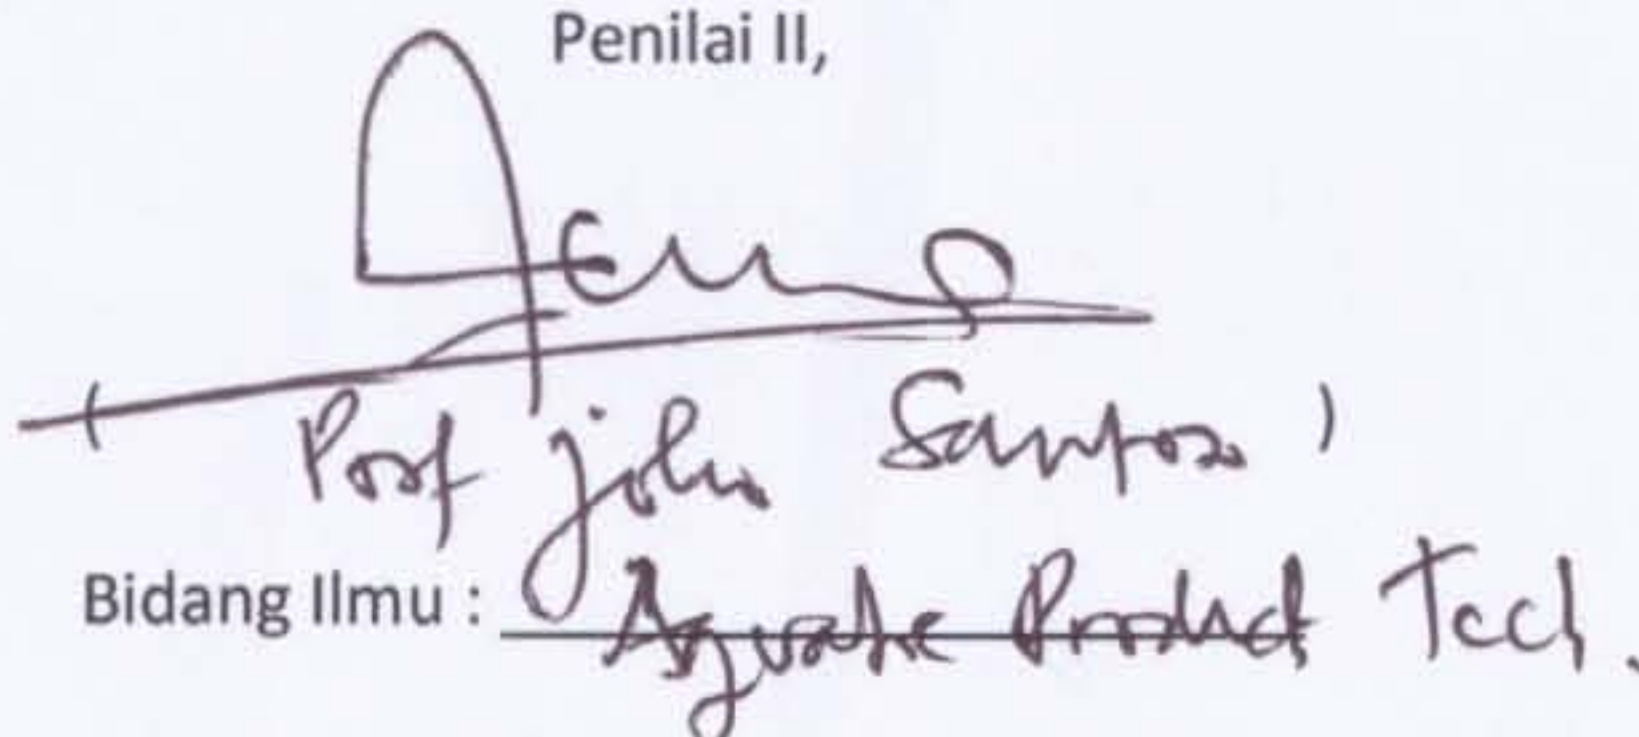 Penilai II,
( Prof John Santoso )
Bidang Ilmu : Aquatic Product Tech.